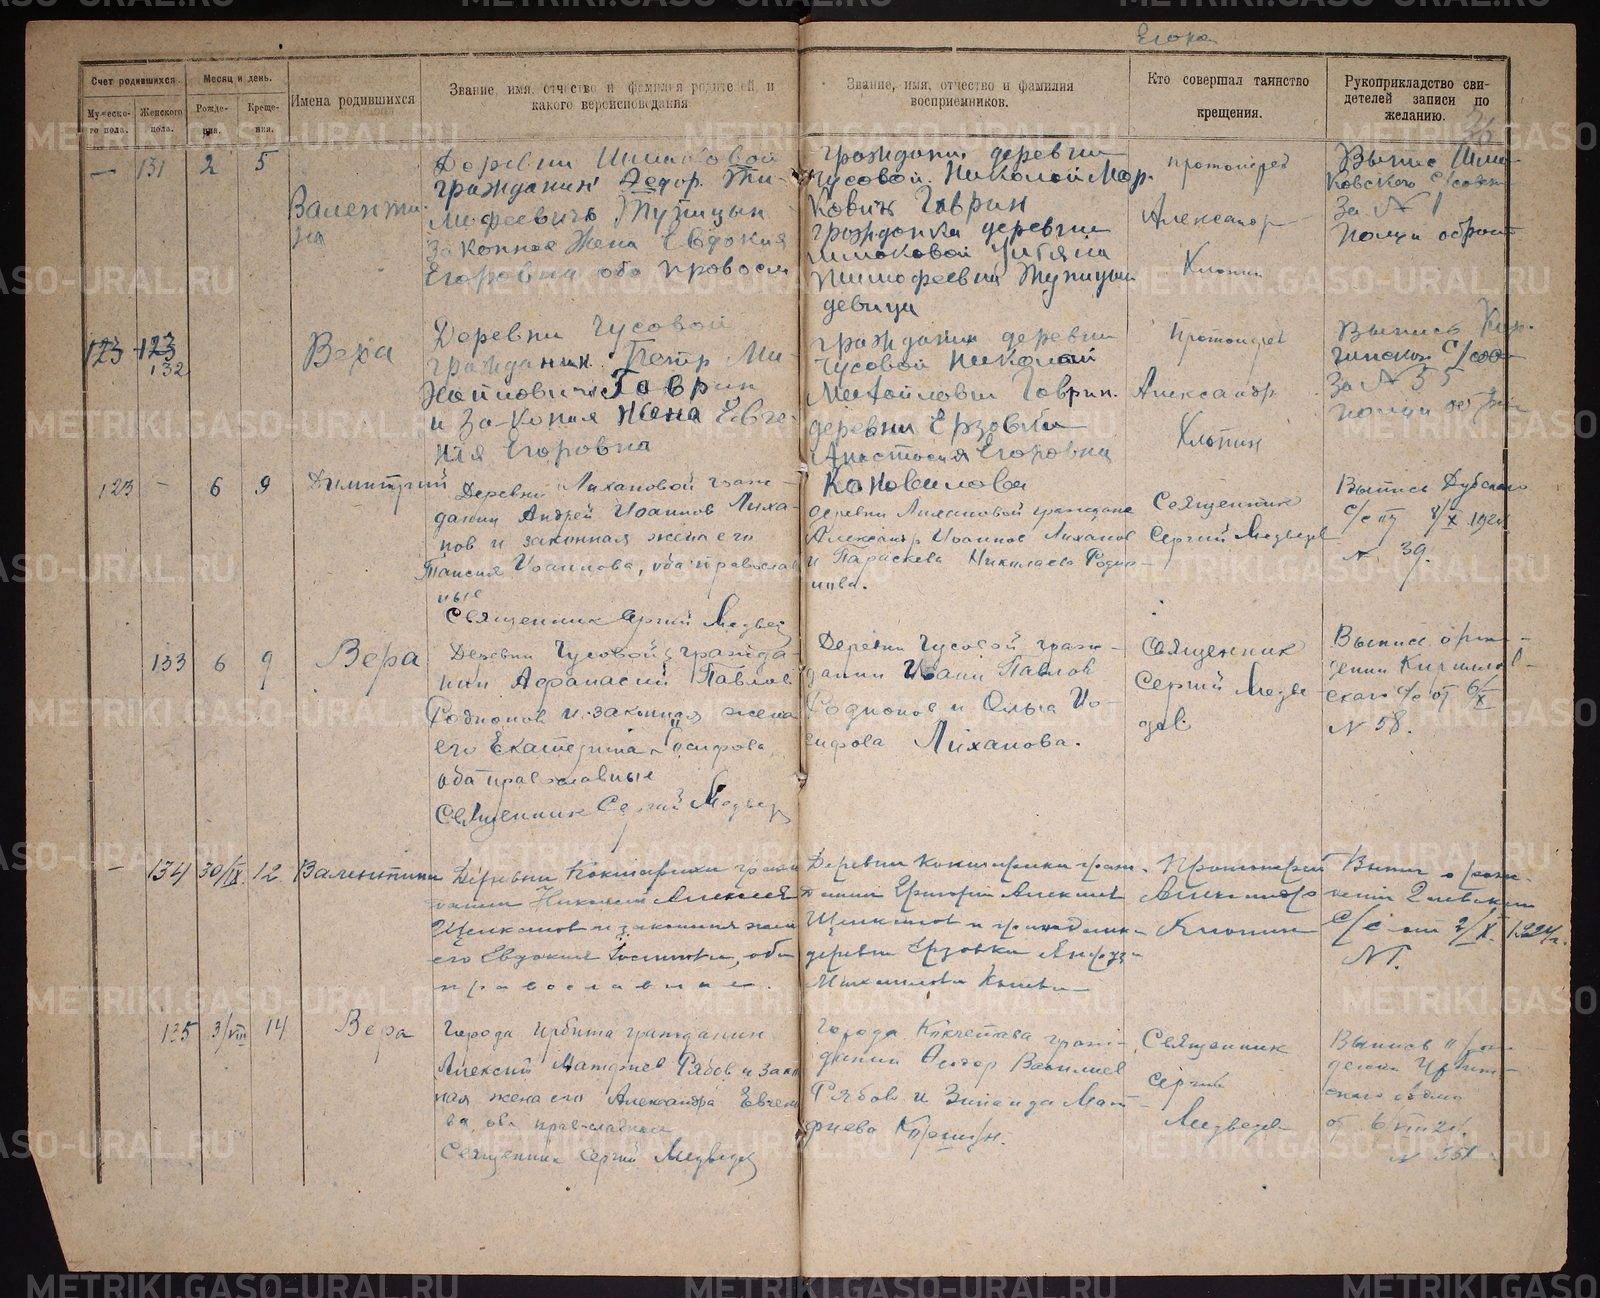 Егора
Счет родившихся.
Мужеско-
го пола.
Женского
пола.
Месяц и день.
Рожде-
ния.
Креще-
ния.
Имена родившихся
Звание, имя, отчество и фамилия родителей, и
какого вероисповедания
Звание, имя, отчество и фамилия
восприемников.
Кто совершал таинство
крещения.
Рукоприкладство сви-
детелей записи по
желанию.
— 131 2 5
Валенти-
на
Деревни Шмаковой
гражданин Федор Ти-
мофеевичь Тупицын
законное Жена Евдокия
Егоровна оба провосл
гражданин деревни
Чусовой Николай Мар-
кович Гаврин
гражданка деревни
Шмаковой
Тимофеевна Тупицын
девица
протоиерей
Александр
Хлопин
Выпис Шма-
ковского С/совет
За № 1
123 123
132
Вера
Деревни Чусовой
гражданин Петр Ми-
хайлович Гаврин
и Законая Жена Евге-
ния Егоровна
гражданин деревни
Чусовой Николай
Михайлович Гаврин
деревни Ерзовки
Анастасия Егоровна
Коновалова
Протоиерей
Александр
Хлопин
Выпись
С/сов
За № 55
123 — 6 9
Димитрий
Деревни Лихановой граж-
данин Андрей Иоаннов Лиха-
нов и законная жена его
Таисия Иоаннова, оба православ
ные
Священник Сергий Медведев
деревни Лихановой граждане
Александр Иоаннов Лиханов
и Параскева Николаева Родио-
нова.
Священник
Сергий Медведев
Выпись Дубского
с/с от 8/X 1924
№ 39.
133 6 9
Вера
Деревни Чусовой гражда-
нин Афанасий Павлов
Родионов и законная жена
его Екатерина Иосифова,
оба православные
Священник Сергий Медведев
Деревни Чусовой граж-
данин Иоанн Павлов
Родионов и Ольга Ио-
сифова Лиханова.
Священник
Сергий Медве-
дев
Выпись о рож-
дении Кириллов-
скаго с/с от 6/X
№ 58.
— 134 30/IX 12
Валентина
Деревни Кокшарихи граж
данин Николай Алексеев
Щелканов и законная жена
его Евдокия, оба
православные.
Деревни Кокшарихи граж-
данин Григорий Алексеев
Щелканов и гражданка
деревни Ерзовки
Михайлова
Протоиерей
Александр
Хлопин
Выпись о рож-
дении
С/с от 2/X 1924 г.
№ 1.
135 3/VIII 14
Вера
Города Ирбита гражданин
Алексий Матфиев Рябов и закон
ная жена его Александра Евгень
ва, оба православные
Священник Сергий Медведев
Города Кокчетава граж-
данин Феодор Василиев
Рябов и Зинаида Мат-
фиева
Священник
Сергий
Медведев
Выпись о рож-
дении Ирбит-
скаго
от 6 VIII 24.
№ 551
METRIKI.GASO-URAL.RU